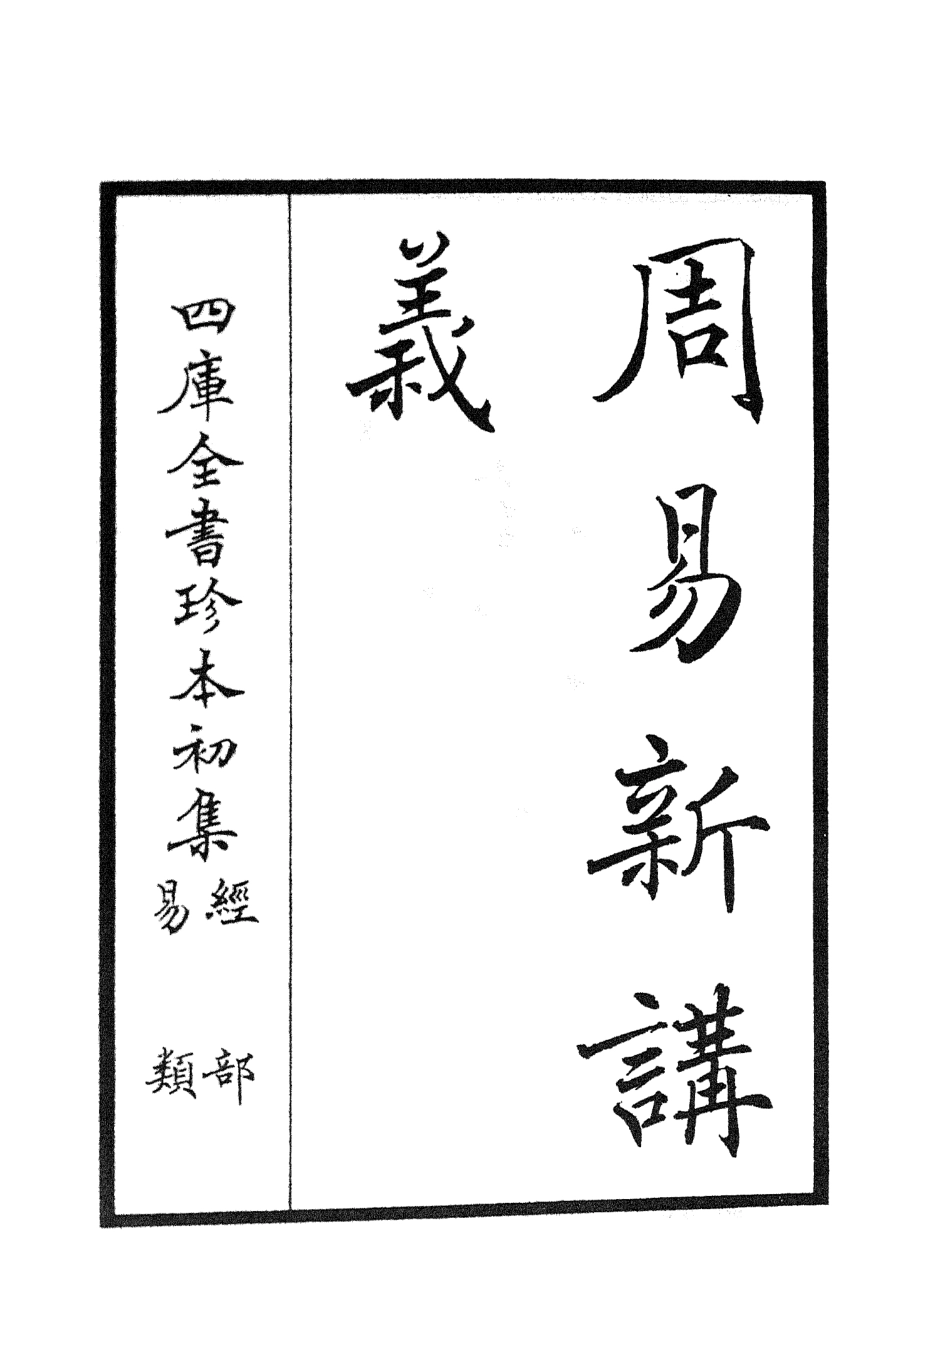 周易新講
義
四庫全書珍本初集
經部
易類